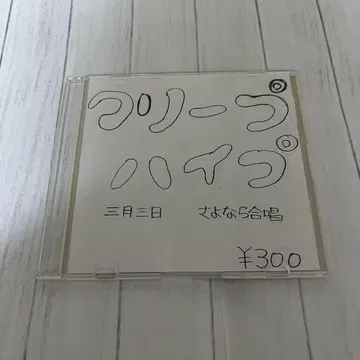 クリープ
ハイプ
三月三日 さよなら合唱
¥300